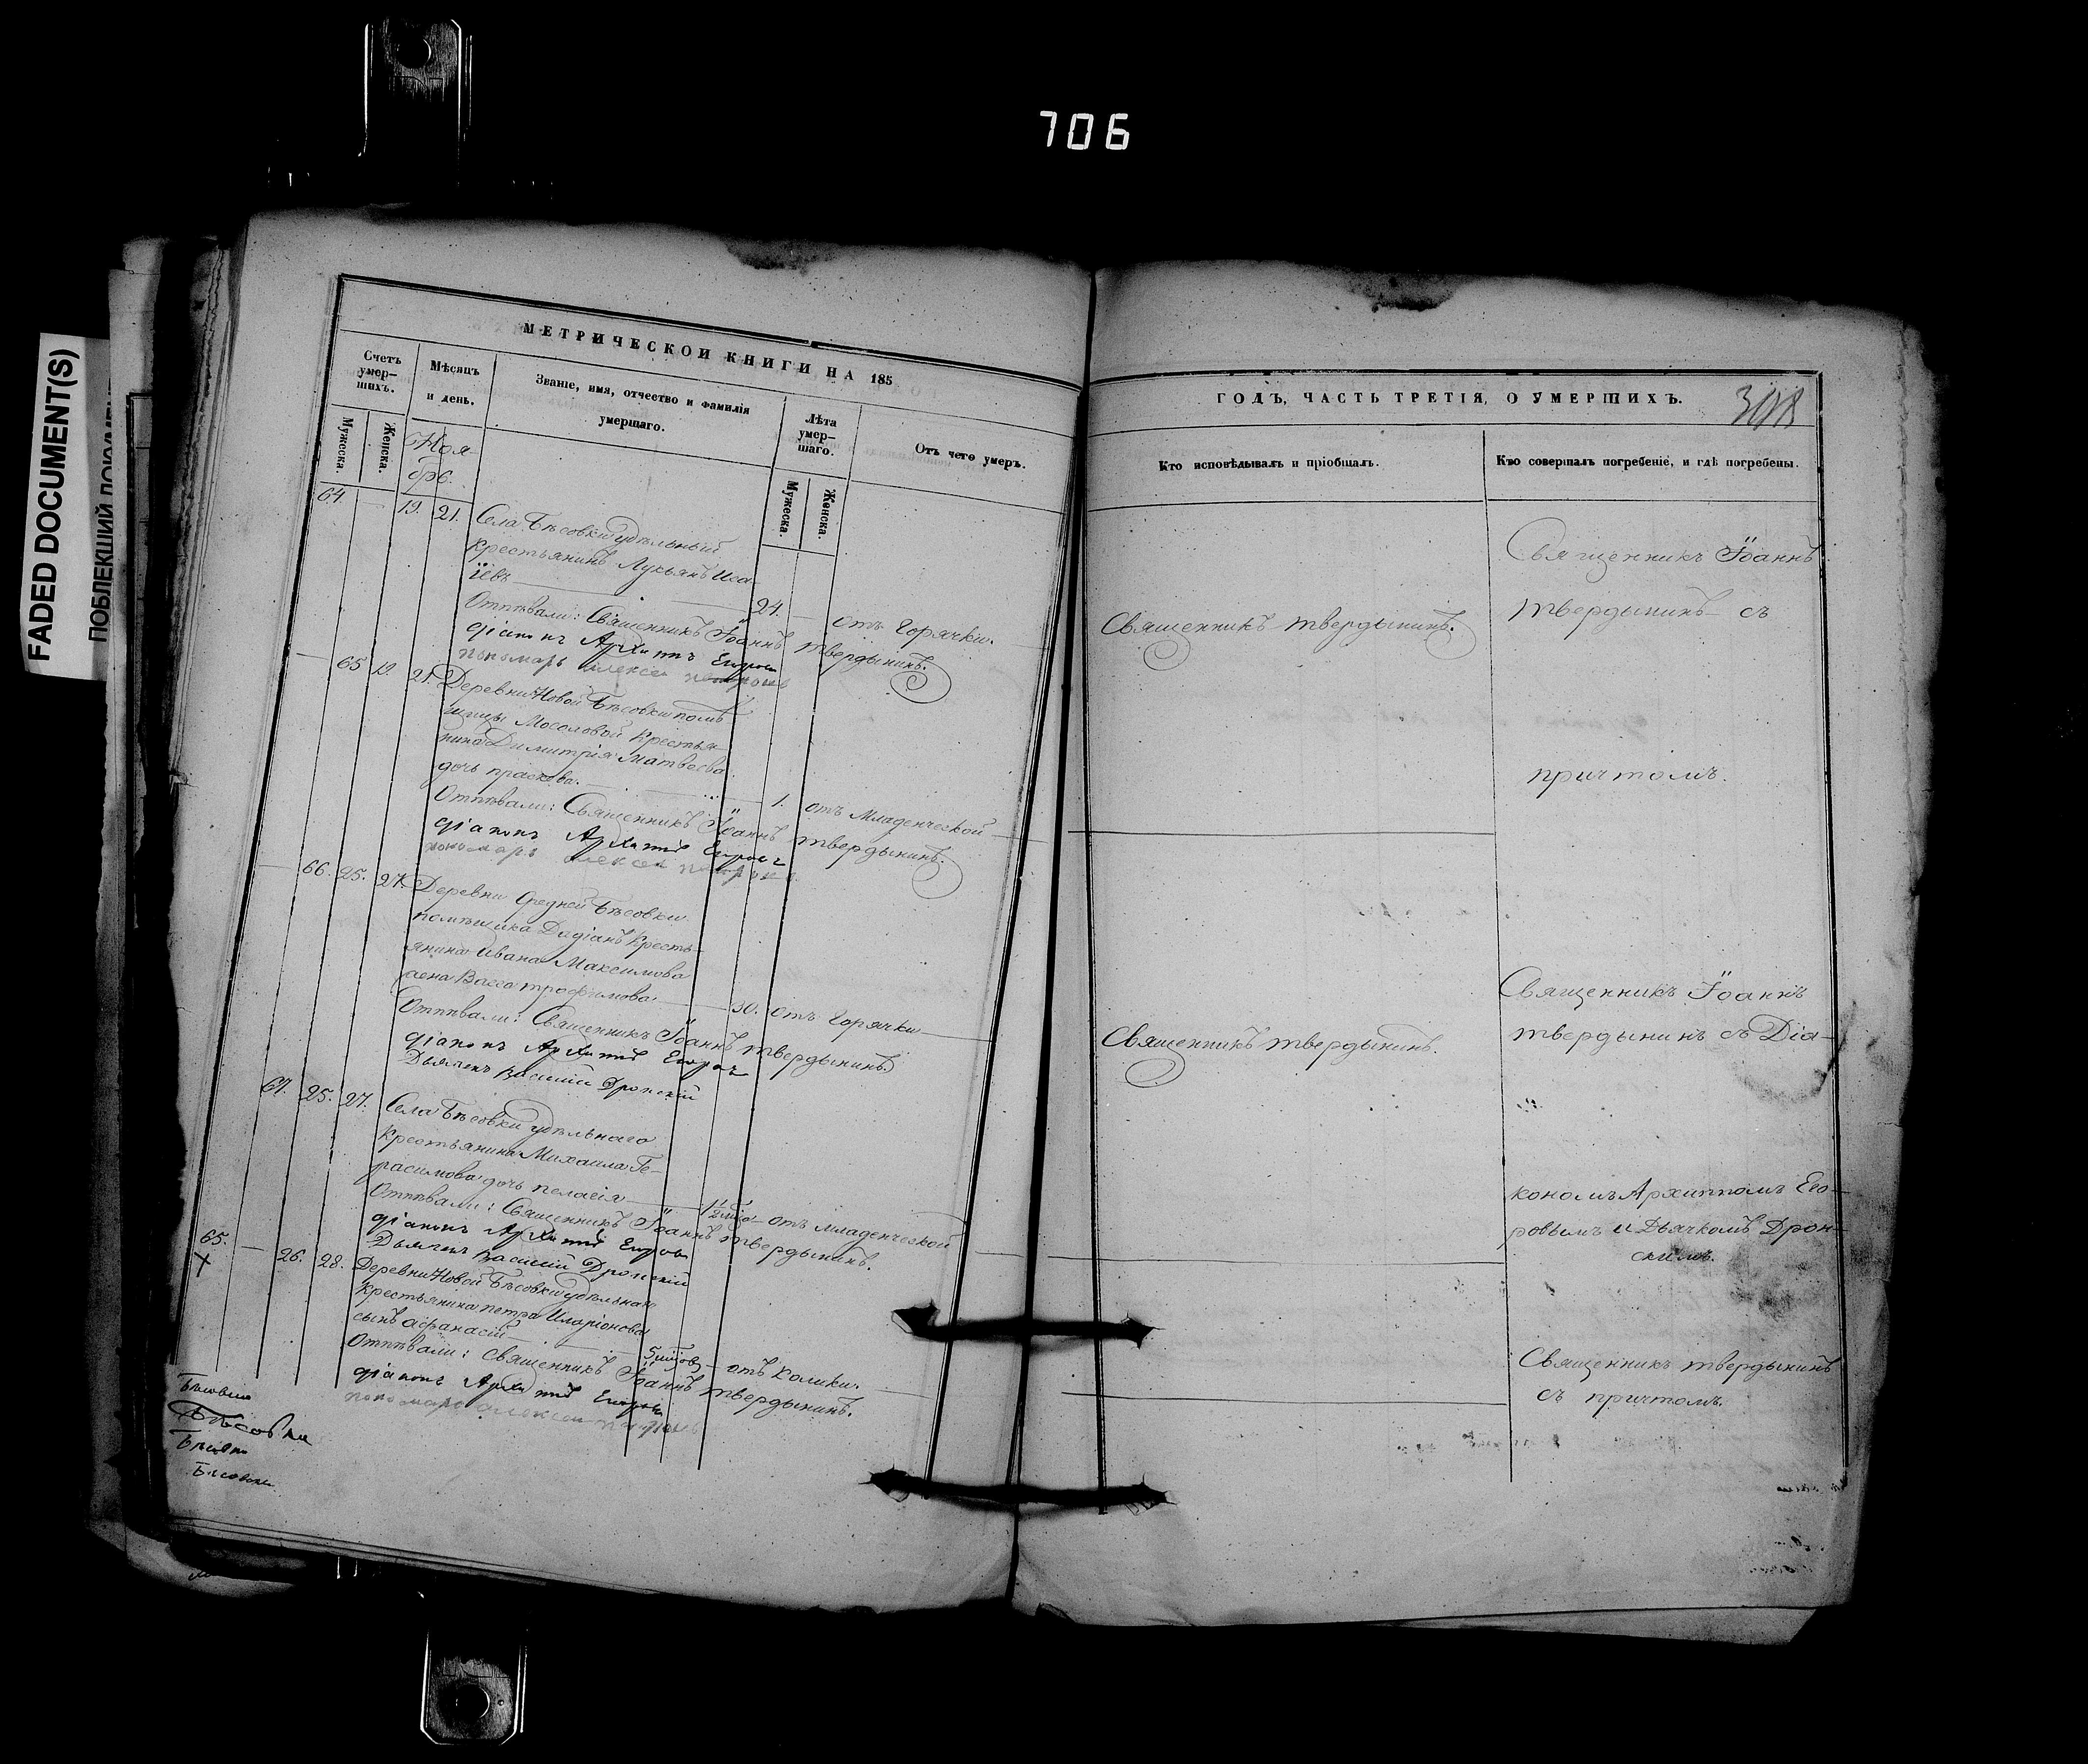 706
FADED DOCUMENT(S)
МЕТРИЧЕСКОЙ КНИГИ НА 185
Счетъ умер–шихъ.
Мѣсяцъ и день.
Званіе, имя, отчество и фамилія умершаго.
Лѣта умер–шаго.
Отъ чего умеръ.
Мужеска.
Женска.
Ноя-
бре.
Мужеска.
Женска.
64 — 19. 21. Села Бѣсовки удѣльный
крестьянинъ Лукьянъ Иса-
іевъ — 24. — отъ горячки.
Отпѣвали: Священникъ Іоаннъ Твердынинъ.
діаконъ Архипъ Егоровъ
пономарь Алексей
— 65 19. 21. Деревни Новой Бѣсовки помѣ
щицы Мосоловой крестья-
нина Димитрія Матвеева
дочь Праскева. — 1. отъ Младенческой
Отпѣвали: Священникъ Іоаннъ Твердынинъ.
діаконъ Архипъ Егоровъ
пономарь Алексей
— 66. 25. 27. Деревни Средней Бѣсовки
помѣщика Дадіанъ Кресть-
янина Ивана Максимова
жена Васса Трофимова. — 30. отъ горячки —
Отпѣвали: Священникъ Іоаннъ Твердынинъ
діаконъ Архипъ Егоровъ
Дьячекъ Василій Дронскій
67. 25. 27. Села Бѣсовки удѣльнаго
крестьянина Михаила Ге-
расимова дочь Пелагія — 1½ — отъ младенческой
Отпѣвали: Священникъ Іоаннъ Твердынинъ.
діаконъ Архипъ Егоровъ
Дьячекъ Василій Дронскій
65. — 26. 28. Деревни Новой Бѣсовки удѣльнаго
крестьянина Петра Иларіонова
сынъ Афанасій — 5 — отъ колики.
Отпѣвали: Священникъ Іоаннъ Твердынинъ.
діаконъ Архипъ Егоровъ
пономарь Алексей
Бѣсовка
ГОДЪ, ЧАСТЬ ТРЕТІЯ, О УМЕРШИХЪ.
Кто исповѣдывалъ и пріобщалъ.
Кто совершалъ погребеніе, и гдѣ погребены.
Священникъ Іоаннъ
Священникъ Твердынинъ.
Твердынинъ съ
причтомъ.
Священникъ Іоаннъ
Священникъ Твердынинъ.
Твердынинъ съ Діа-
кономъ Архиппомъ Его-
ровымъ и Дьячкомъ Дрон-
скимъ.
Священникъ Твердынинъ
съ причтомъ.